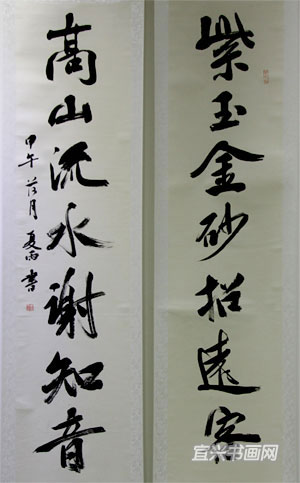 紫玉金砂招远客
高山流水谢知音
甲午荷月夏雨书
宜兴书画网